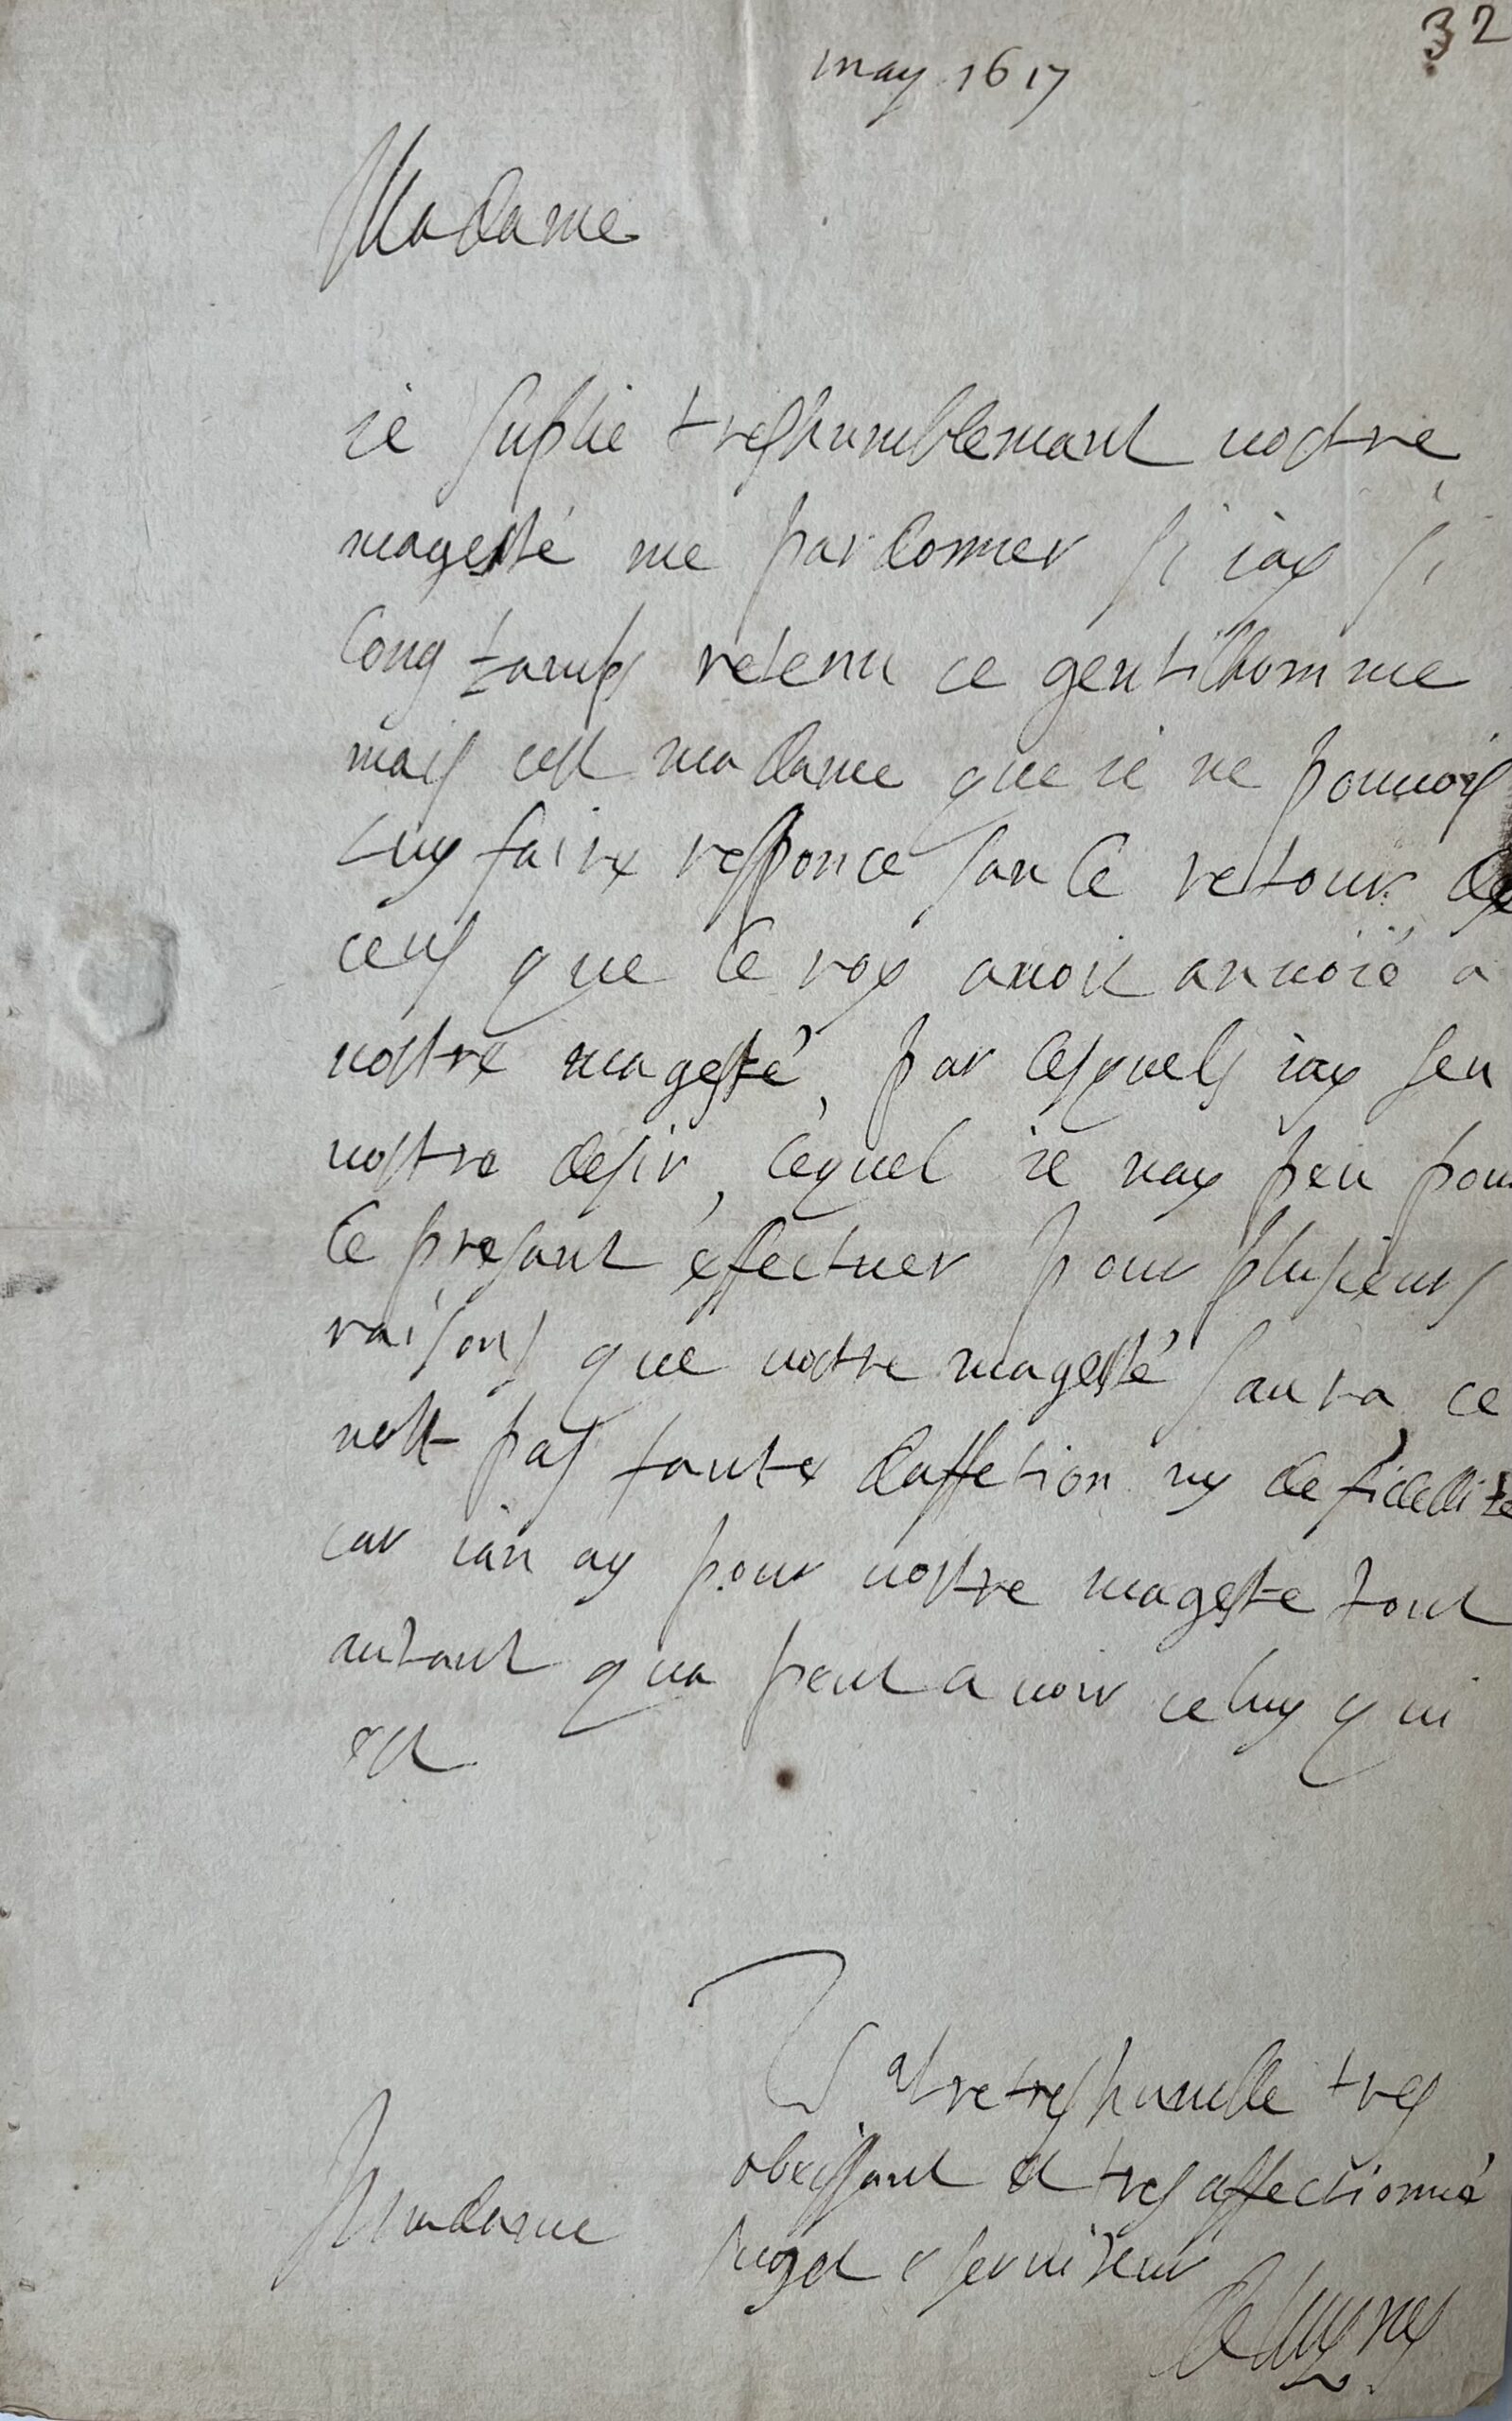 32
may 1617
Madame
ie suplie treshumblemant vostre
magesté me pardonner si iay si
long tamps retenu ce gentilhomme
mais cest madame que ie ne pouuois
luy faire responce san le retour de
ceus que le roy auoit anuoié a
vostre magesté, par lesquels iay seu
vostre desir, lequel ie nay peu pour
le presant effectuer pour plusieurs
raisons que vostre magesté saura, ce
nest pas faute daffetion ny de fidellite
car ian ay pour vostre mageste tout
autant qua peut auoir celuy qui
est
Vostre treshumble tres
obeissant et tres affectionné
Madame suget e seruiteur
de luynes